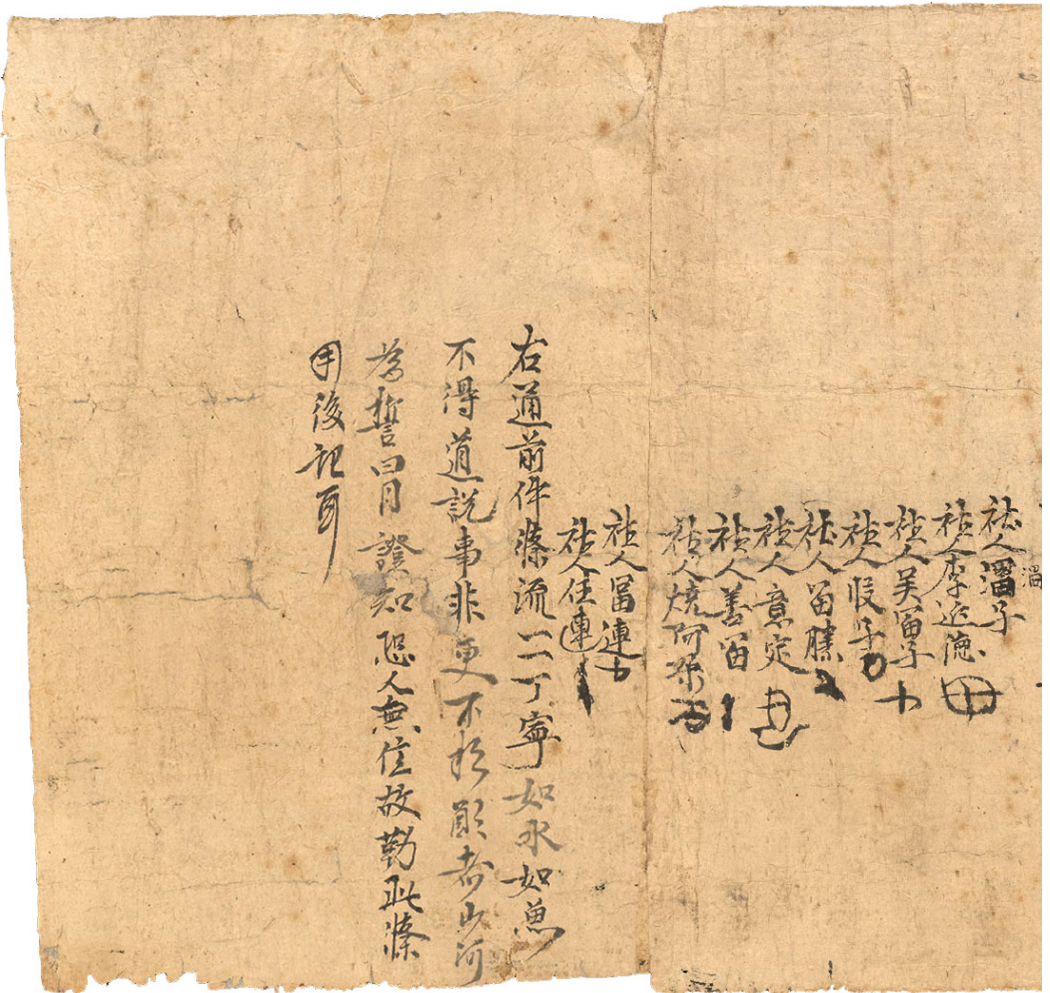 社人溜子
溜
社人李延德
社人吴富子
社人段子
社人富勝
社人意定
社人善富
社人燒阿朵
社人富連
社人住連
右通前件條流一一丁寧如水如魚
不得道說事非更不於願者山河
為誓日月證知恐人無信故勒此條
用後記耳